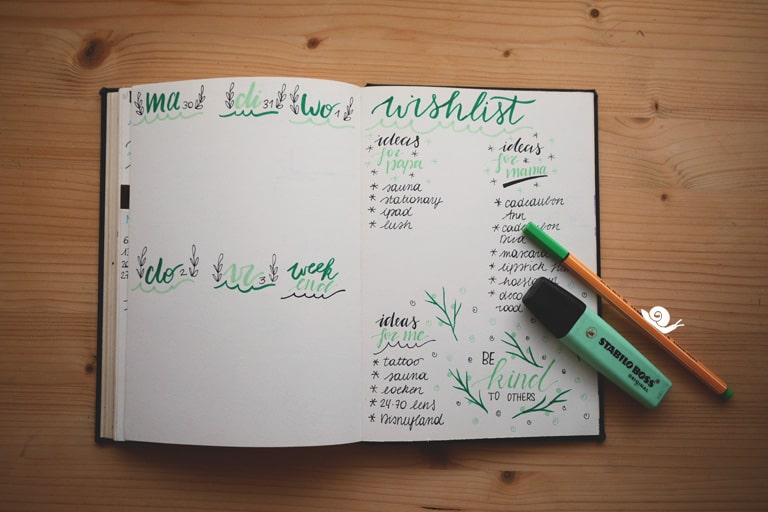 ma 30
di 31
wo 1
do 2
vr 3
week
end
wishlist
ideas
for
papa
* sauna
* stationary
* ipad
* lush
ideas
for
mama
* cadeaubon
Ann
*
* mascara
* lipstick
*
* deco
ideas
for me
* tattoo
* sauna
*
* 24-70 lens
* Disneyland
BE
kind
TO OTHERS
STABILO BOSS
ORIGINAL